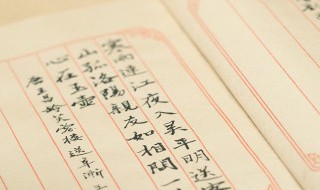 寒雨連江夜入吳平明送客
山孤洛陽親友如相問一
心在玉壺
唐王昌齡芙蓉樓送辛漸